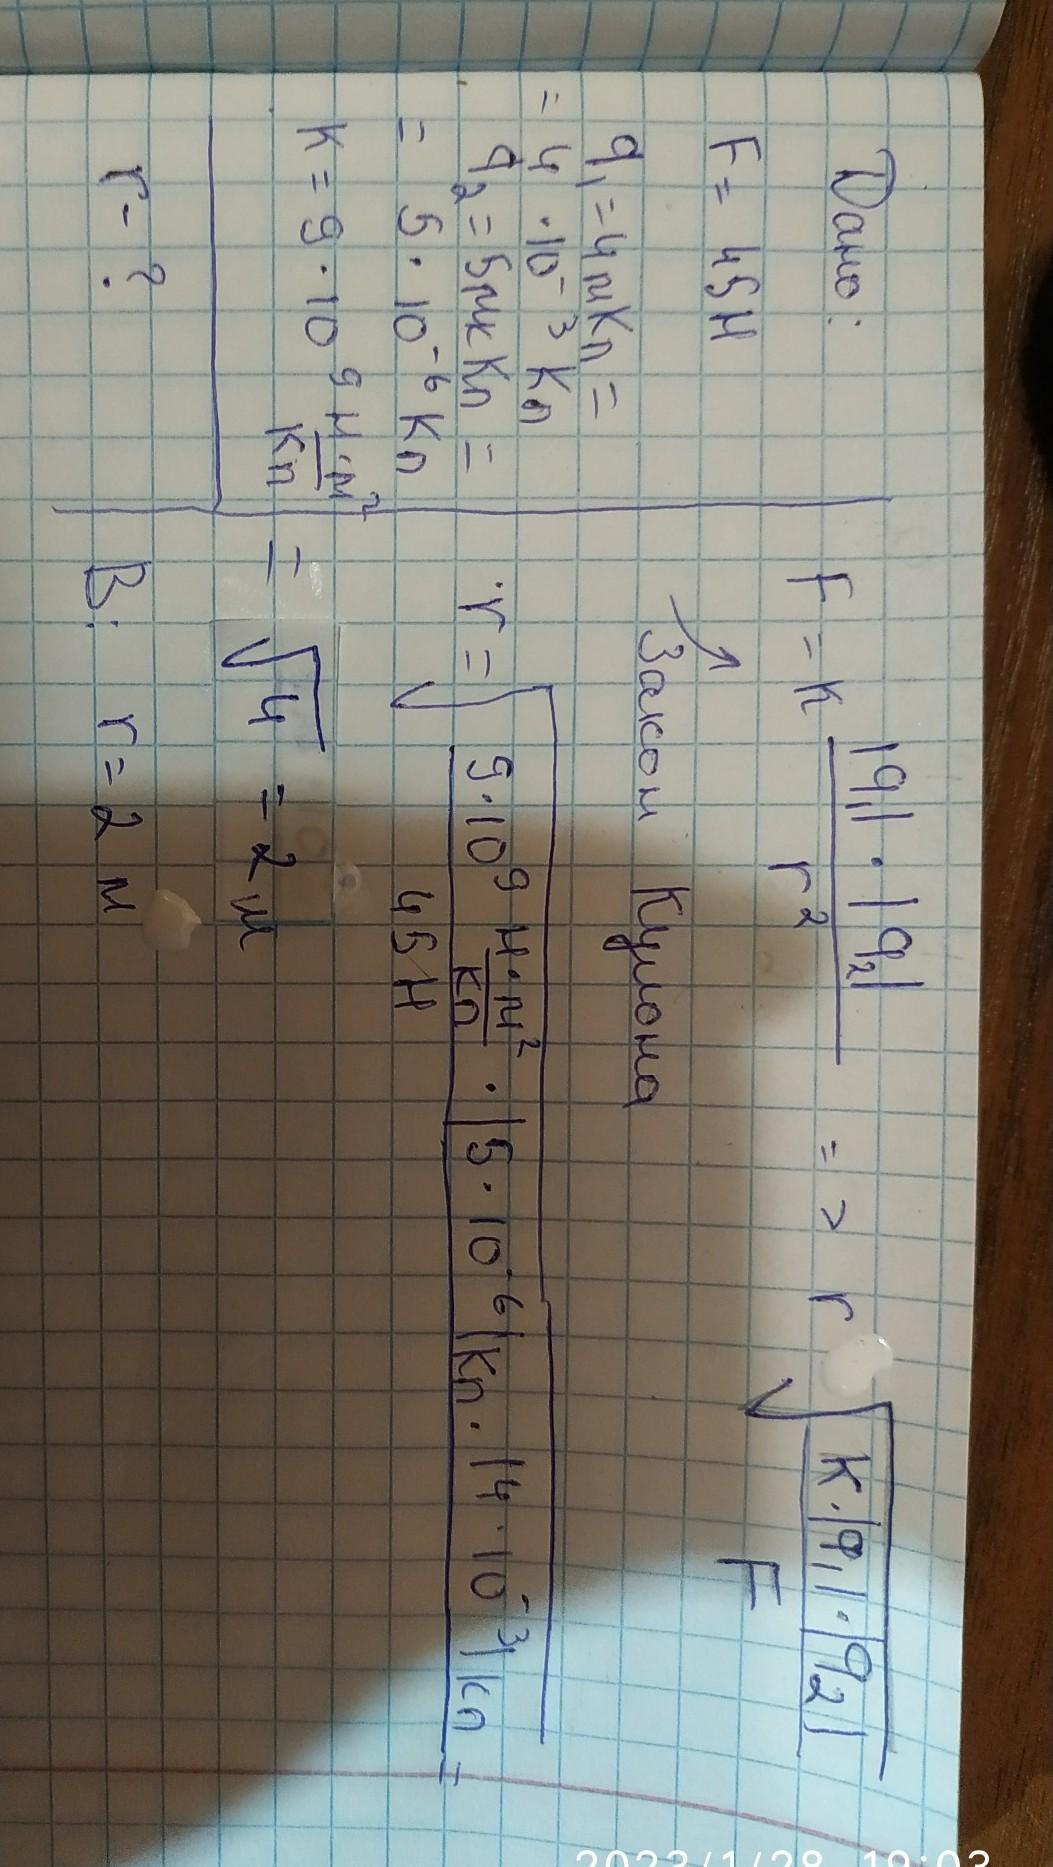 Дано:
F = 45 H
q₁ = 4 мКл =
= 4 · 10⁻³ Кл
q₂ = 5 мк Кл =
= 5 · 10⁻⁶ Кл
К = 9 · 10⁹ Н·м²/Кл
r - ?
F = К |q₁| · |q₂| / r² => r √ К·|q₁|·|q₂| / F
Закон Кулона
r = √ 9·10⁹ Н·м²/Кл · |5·10⁻⁶| Кл · |4·10⁻³| Кл / 45 Н =
= √4 = 2 м
В: r = 2 м
2023/1/28 19:03